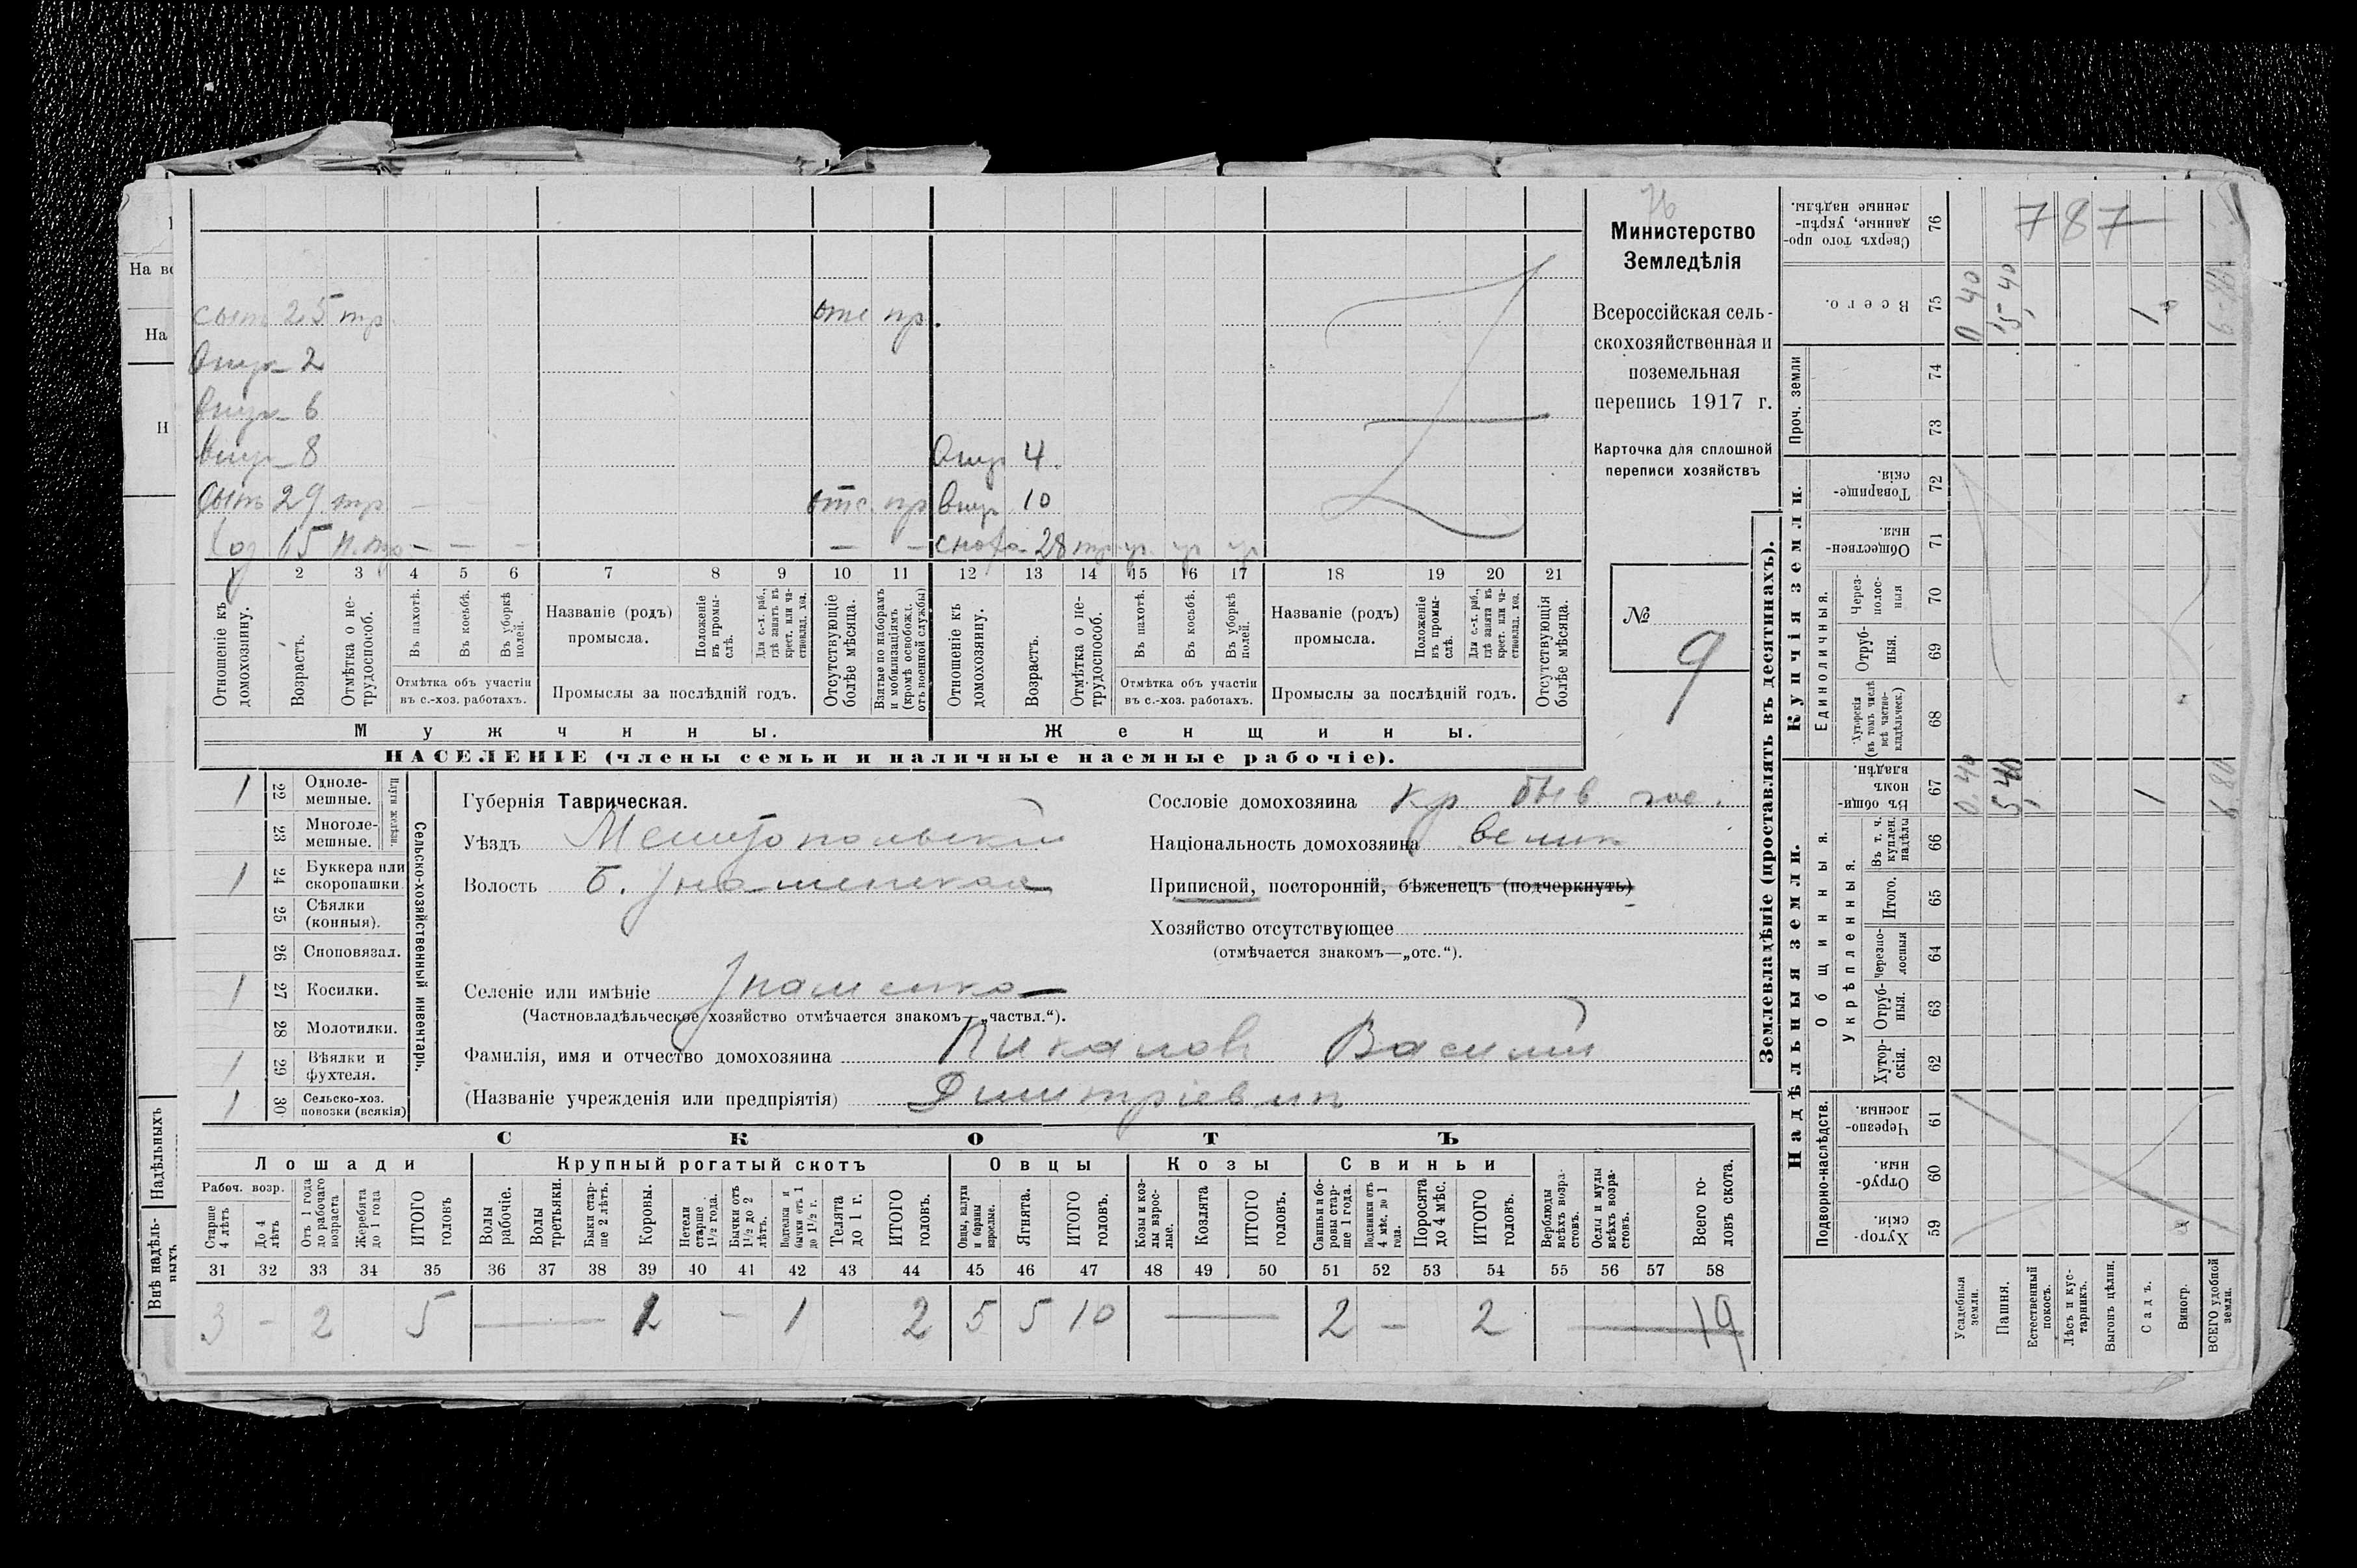 76
Министерство
Земледѣлія
Всероссійская сель-
скохозяйственная и
поземельная
перепись 1917 г.
Карточка для сплошной
переписи хозяйствъ
№
9
сынъ 25 тр. отс пр.
Внук 2
Внук 6
Внук 8 Внуч 4.
Сынъ 29 тр — отс. пр Внуч 10
Хоз 65 п. тр — — — — — сноха 28 тр ур. ур ур
1 2 3 4 5 6 7 8 9 10 11 12 13 14 15 16 17 18 19 20 21
Отношеніе къ домохозяину.
Возрастъ.
Отмѣтка о не-трудоспособ.
Въ пахотѣ.
Въ косьбѣ.
Въ уборкѣ полей.
Отмѣтка объ участіи
въ с.-хоз. работахъ.
Названіе (родъ)
промысла.
Положеніе въ промы-слѣ.
Для с.-х. раб., гдѣ занятъ въ крест. или ча-стновлад. хоз.
Промыслы за послѣдній годъ.
Отсутствующіе болѣе мѣсяца.
Взятые по наборамъ и мобилизаціямъ (кромѣ освобожд. отъ военной службы)
Отношеніе къ домохозяину.
Возрастъ.
Отмѣтка о не-трудоспособ.
Въ пахотѣ.
Въ косьбѣ.
Въ уборкѣ полей.
Отмѣтка объ участіи
въ с.-хоз. работахъ.
Названіе (родъ)
промысла.
Положеніе въ промы-слѣ.
Для с.-х. раб., гдѣ занята въ крест. или ча-стновлад. хоз.
Промыслы за послѣдній годъ.
Отсутствующія болѣе мѣсяца.
Мужчины. Женщины.
НАСЕЛЕНІЕ (члены семьи и наличные наемные рабочіе).
Сельско-хозяйственный инвентарь.
Плуги желѣзн.
1 22 Одноле-мешные.
23 Многоле-мешные.
1 24 Буккера или скоропашки
25 Сѣялки (конныя).
26 Сноповязал.
1 27 Косилки.
28 Молотилки.
1 29 Вѣялки и фухтеля.
1 30 Сельско-хоз. повозки (всякія)
Губернія Таврическая.
Уѣздъ Мелитопольскій
Волость Б. Знаменская
Селеніе или имѣніе Знаменка
(Частновладѣльческое хозяйство отмѣчается знакомъ—„частвл.“).
Фамилія, имя и отчество домохозяина Пикаловъ Василій
(Названіе учрежденія или предпріятія) Димитріевич
Сословіе домохозяина кр быв гос.
Національность домохозяина велик
Приписной, посторонній, бѣженецъ (подчеркнуть)
Хозяйство отсутствующее
(отмѣчается знакомъ—„отс.“).
СКОТЪ
Лошади Крупный рогатый скотъ Овцы Козы Свиньи
Рабоч. возр.
Старше 4 лѣтъ
До 4 лѣтъ
Отъ 1 года до рабочаго возраста
Жеребята до 1 года
ИТОГО головъ
Волы рабочіе.
Волы третьяки.
Быки стар-ше 2 лѣтъ.
Коровы.
Нетели старше 1½ года.
Бычки отъ 1½ до 2 лѣтъ.
Подтелки и бычки отъ 1 до 1½ г.
Телята до 1 г.
ИТОГО головъ.
Овцы, валухи и бараны взрослые.
Ягнята.
ИТОГО головъ.
Козы и коз-лы взрос-лые.
Козлята
ИТОГО головъ.
Свиньи и бо-ровы стар-ше 1 года.
Подсвинки отъ 4 мѣс. до 1 года.
Поросята до 4 мѣс.
ИТОГО головъ.
Верблюды всѣхъ возра-стовъ.
Ослы и мулы всѣхъ возра-стовъ.
Всего го-ловъ скота.
31 32 33 34 35 36 37 38 39 40 41 42 43 44 45 46 47 48 49 50 51 52 53 54 55 56 57 58
3 — 2 5 — — 1 2 5 5 10 — 2 — 2 — 19
Землевладѣніе (проставлять въ десятинахъ).
Надѣльныя земли. Купчія земли.
Проч. земли
Подворно-наслѣдств.
Общинныя.
Укрѣпленныя.
Единоличныя.
Хутор-скія. 59
Отруб-ныя. 60
Черезпо-лосныя. 61
Хутор-скія. 62
Отруб-ныя. 63
Черезпо-лосныя 64
Итого. 65
Въ т. ч. куплен. надѣлы 66
Въ общин-номъ владѣн. 67
Хуторскія (въ томъ числѣ всѣ частно-владѣльческ.) 68
Отруб-ныя. 69
Через-полос-ныя 70
Обществен-ныя. 71
Товарище-скія. 72
73
74
Всего. 75
Сверхъ того про-данные, укрѣп-ленные надѣлы. 76
Усадебная земли.
Пашня.
Естественный покосъ.
Лѣсъ и кус-тарникъ.
Выгонъ цѣлин.
Садъ.
Виногр.
ВСЕГО удобной земли.
787
0 40
5, 40
1
0. 40
5, 40
1
6 80
На
Н
Надѣльныхъ
Внѣ надѣль-ныхъ